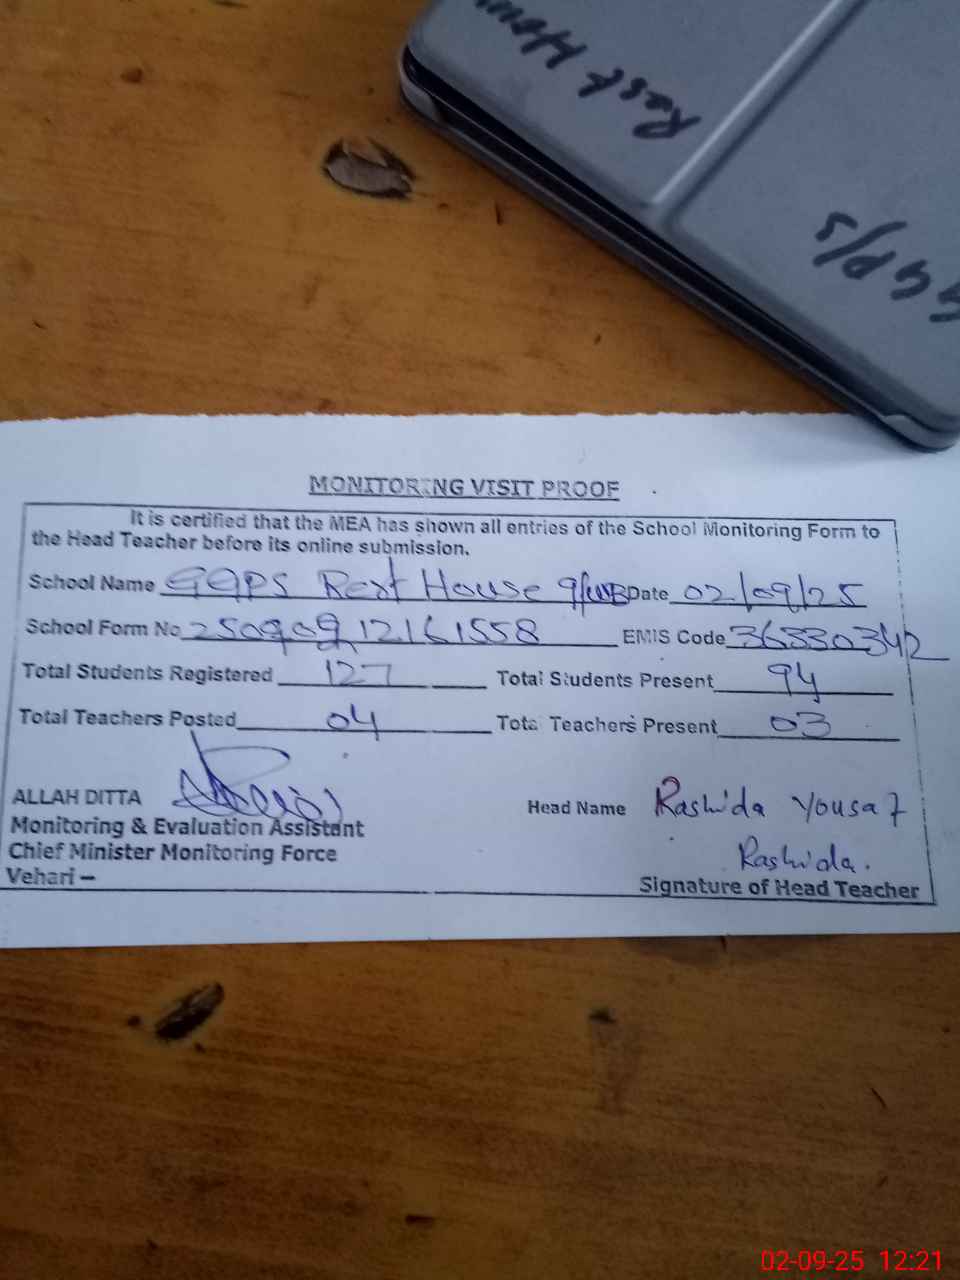 Rest Hou
GGP/S
MONITORING VISIT PROOF
It is certified that the MEA has shown all entries of the School Monitoring Form to
the Head Teacher before its online submission.
School Name GGPS Rest House 9/WB Date 02/09/25
School Form No EMIS Code 36330342
Total Students Registered 127 Total Students Present 94
Total Teachers Posted 04 Total Teachers Present 03
ALLAH DITTA Head Name Rashida Yousaf
Monitoring & Evaluation Assistant
Chief Minister Monitoring Force Rashida.
Vehari – Signature of Head Teacher
02-09-25 12:21